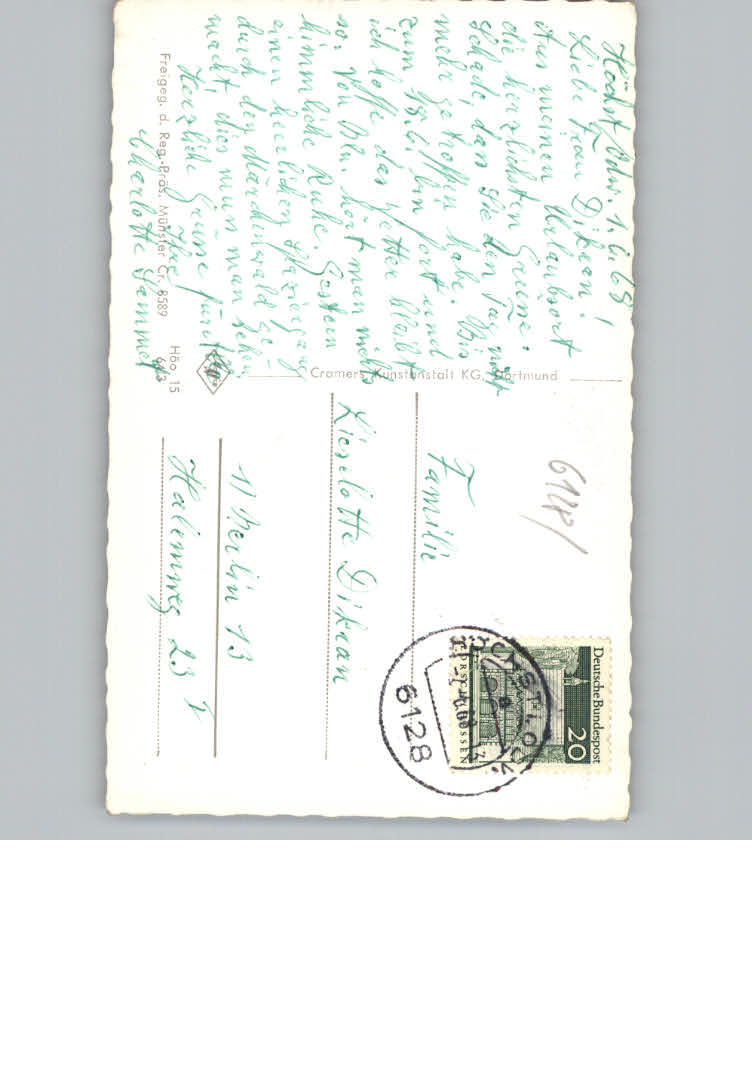 Höchst/Odw. 1.6.68
Liebe Frau Dikran!
Aus meinem Urlaubsort
die herzlichsten Grüße.
Schade, dass Sie den Tag nicht
mehr getroffen habe. Bis
zum 15.6. bin fort und
ich hoffe das Wetter bleibt
so. Von Bln. hört man nichts
himmliche Ruhe. Gestern
einen herrlichen Spaziergang
durch den Märchenwald ge-
macht, dies muss man sehen.
Herzliche Grüsse für
Ihre
Charlotte
Freigeg. d. Reg.-Präs. Münster Cr. 8589
Höo 15
643
Cramers Kunstanstalt KG, Dortmund
6128/
Familie
Lieselotte Dikran
1) Berlin 13
Halemweg 23 I
Deutsche Bundespost
20
LORSCH HESSEN
6128